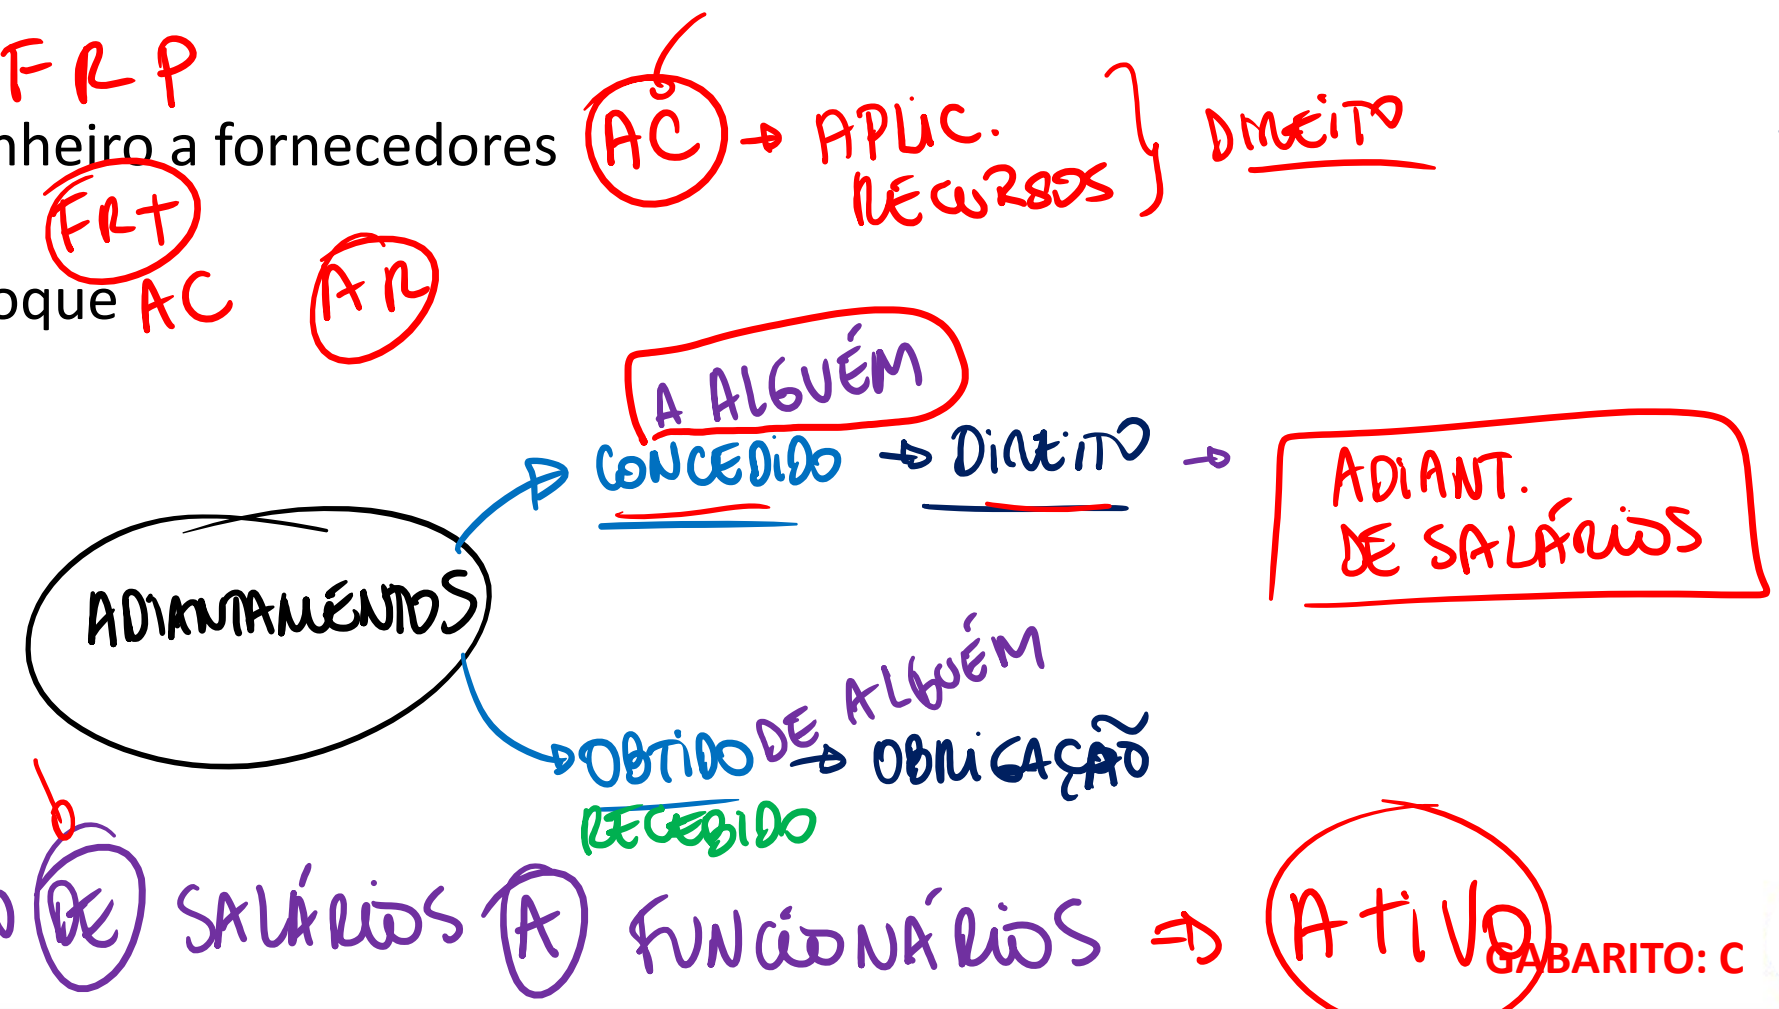 FRP
nheiro a fornecedores AC → APLIC. RECURSOS } DIREITO
FRT
oque AC AR
A ALGUÉM
CONCEDIDO → DIREITO → ADIANT. DE SALÁRIOS
ADIANTAMENTOS
DE ALGUÉM
OBTIDO → OBRIGAÇÃO
RECEBIDO
O DE SALÁRIOS A FUNCIONÁRIOS → ATIVO
GABARITO: C